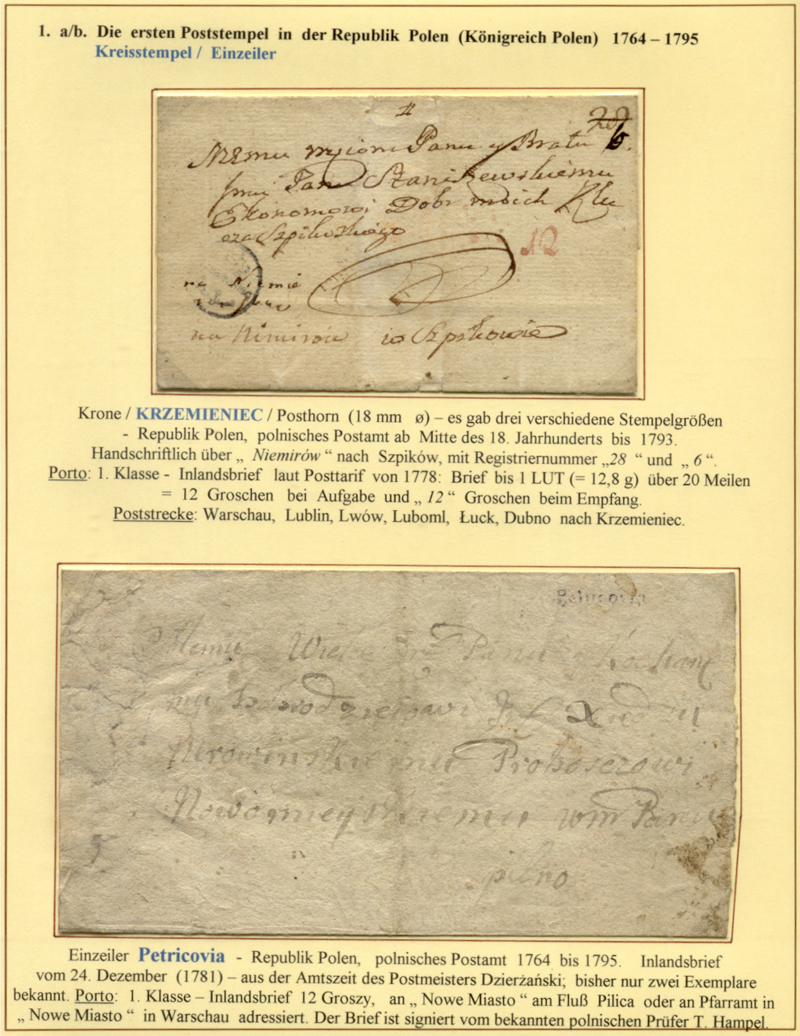 1. a/b. Die ersten Poststempel in der Republik Polen (Königreich Polen) 1764 – 1795
Kreisstempel / Einzeiler
Panu y Bratu 6.
Pan Staniszewskiemu
Ekonomowi Dobr moich
12
na Niemie
na Nimirów w Szpikowie
Krone / KRZEMIENIEC / Posthorn (18 mm ø) – es gab drei verschiedene Stempelgrößen
- Republik Polen, polnisches Postamt ab Mitte des 18. Jahrhunderts bis 1793.
Handschriftlich über „ Niemirów “ nach Szpików, mit Registriernummer „28 “ und „ 6 “.
Porto: 1. Klasse - Inlandsbrief laut Posttarif von 1778: Brief bis 1 LUT (= 12,8 g) über 20 Meilen
= 12 Groschen bei Aufgabe und „ 12 “ Groschen beim Empfang.
Poststrecke: Warschau, Lublin, Lwów, Luboml, Łuck, Dubno nach Krzemieniec.
Panu
Proboszczowi
pilno
Einzeiler Petricovia - Republik Polen, polnisches Postamt 1764 bis 1795. Inlandsbrief
vom 24. Dezember (1781) – aus der Amtszeit des Postmeisters Dzierżański; bisher nur zwei Exemplare
bekannt. Porto: 1. Klasse – Inlandsbrief 12 Groszy, an „ Nowe Miasto “ am Fluß Pilica oder an Pfarramt in
„ Nowe Miasto “ in Warschau adressiert. Der Brief ist signiert vom bekannten polnischen Prüfer T. Hampel.